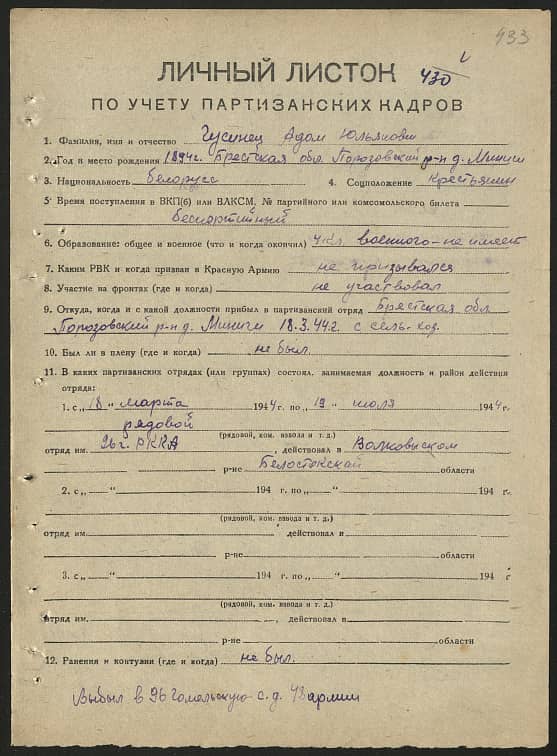 433
ЛИЧНЫЙ ЛИСТОК 430
ПО УЧЕТУ ПАРТИЗАНСКИХ КАДРОВ
1. Фамилия, имя и отчество Гусинец Адам Юльянович
2. Год и место рождения 1894г. Брестская обл. Порозовский р-н д. Миниги
3. Национальность белорусс 4. Соцположение крестьянин
5. Время поступления в ВКП(б) или ВЛКСМ, № партийного или комсомольского билета
беспартийный
6. Образование: общее и военное (что и когда окончил) 4 кл. военного-не имеет
7. Каким РВК и когда призван в Красную Армию не призывался
8. Участие на фронтах (где и когда) не участвовал
9. Откуда, когда и с какой должности прибыл в партизанский отряд Брестская обл.
Порозовский р-н д. Миниги 18.3.44г. с сель-хоз.
10. Был ли в плену (где и когда) не был.
11. В каких партизанских отрядах (или группах) состоял, занимаемая должность и район действия
отряда:
1. с „18“ марта 1944 г. по „19“ июля 1944 г.
рядовой
(рядовой, ком. взвода и т. д.)
отряд им. 26 г. РККА, действовал в Волковыском
р-не Белостокской области
2. с „ “ 194 г. по „ “ 194 г.
(рядовой, ком. взвода и т. д.)
отряд им. , действовал в
р-не области
3. с „ “ 194 г. по „ “ 194 г
(рядовой, ком. взвода и т. д.)
отряд им. , действовал в
р-не области
12. Ранения и контузии (где и когда) не был.
Выбыл в 96 Гомельскую с.д. 48 армии